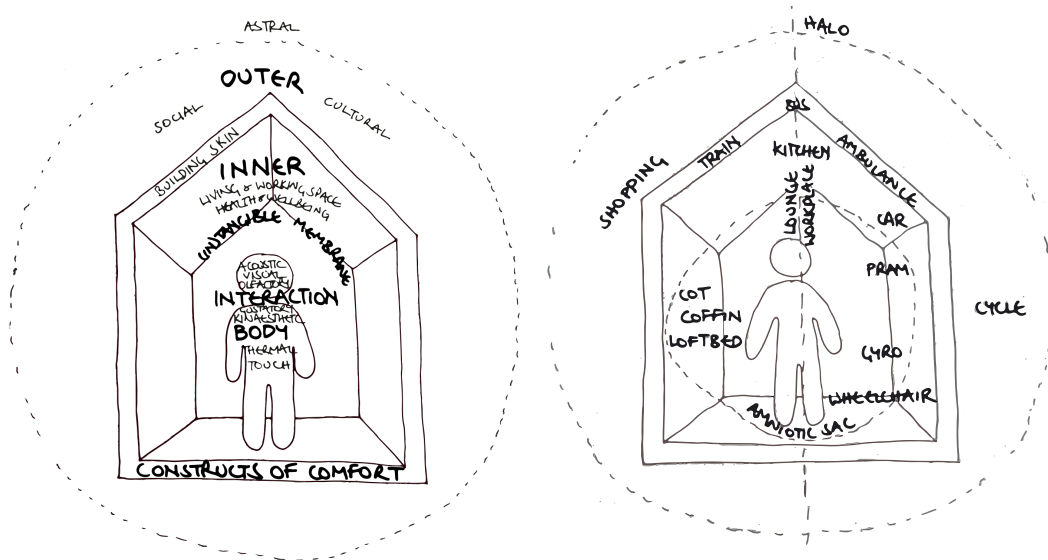 ASTRAL
OUTER
SOCIAL
CULTURAL
BUILDING SKIN
INNER
LIVING & WORKING SPACE
HEALTH & WELLBEING
INTANGIBLE MEMBRANE
ACOUSTIC
VISUAL
OLFACTORY
INTERACTION
GUSTATORY
KINAESTHETIC
BODY
THERMAL
TOUCH
CONSTRUCTS OF COMFORT
HALO
BUS
TRAIN
AMBULANCE
SHOPPING
KITCHEN
LOUNGE
WORKPLACE
CAR
PRAM
COT
COFFIN
LOFTBED
CYCLE
GYRO
WHEELCHAIR
AMNIOTIC SAC